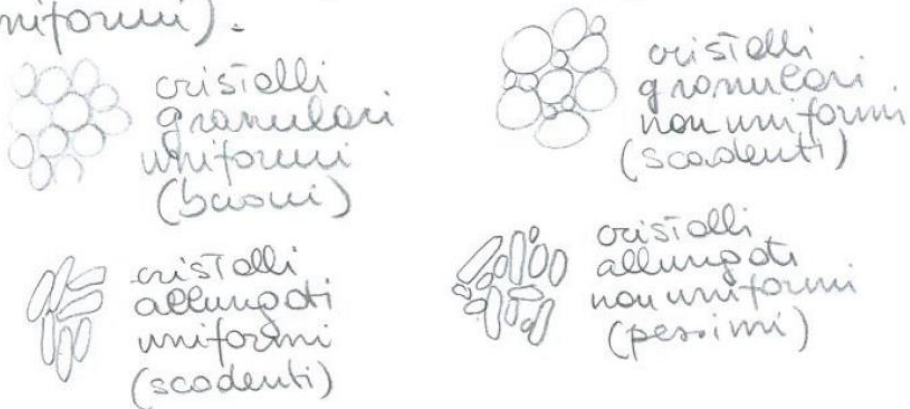 niformi).
cristalli
granulari
uniformi
(buoni)
cristalli
granulari
non uniformi
(scadenti)
cristalli
allungati
uniformi
(scadenti)
cristalli
allungati
non uniformi
(pessimi)